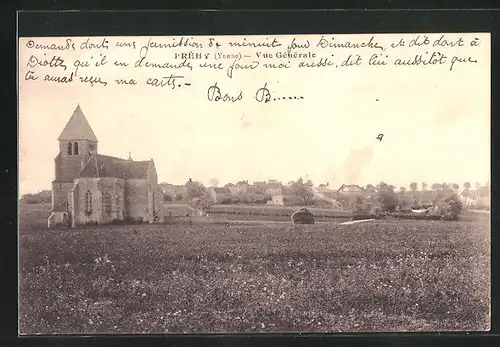 Demande donc une permission de minuit pour Dimanche, et dit dont à
PRÉHY (Yonne) - Vue Générale
qu'il en demande une pour moi aussi, dit lui aussitôt que
tu auras reçu ma carte.-
Bons B......